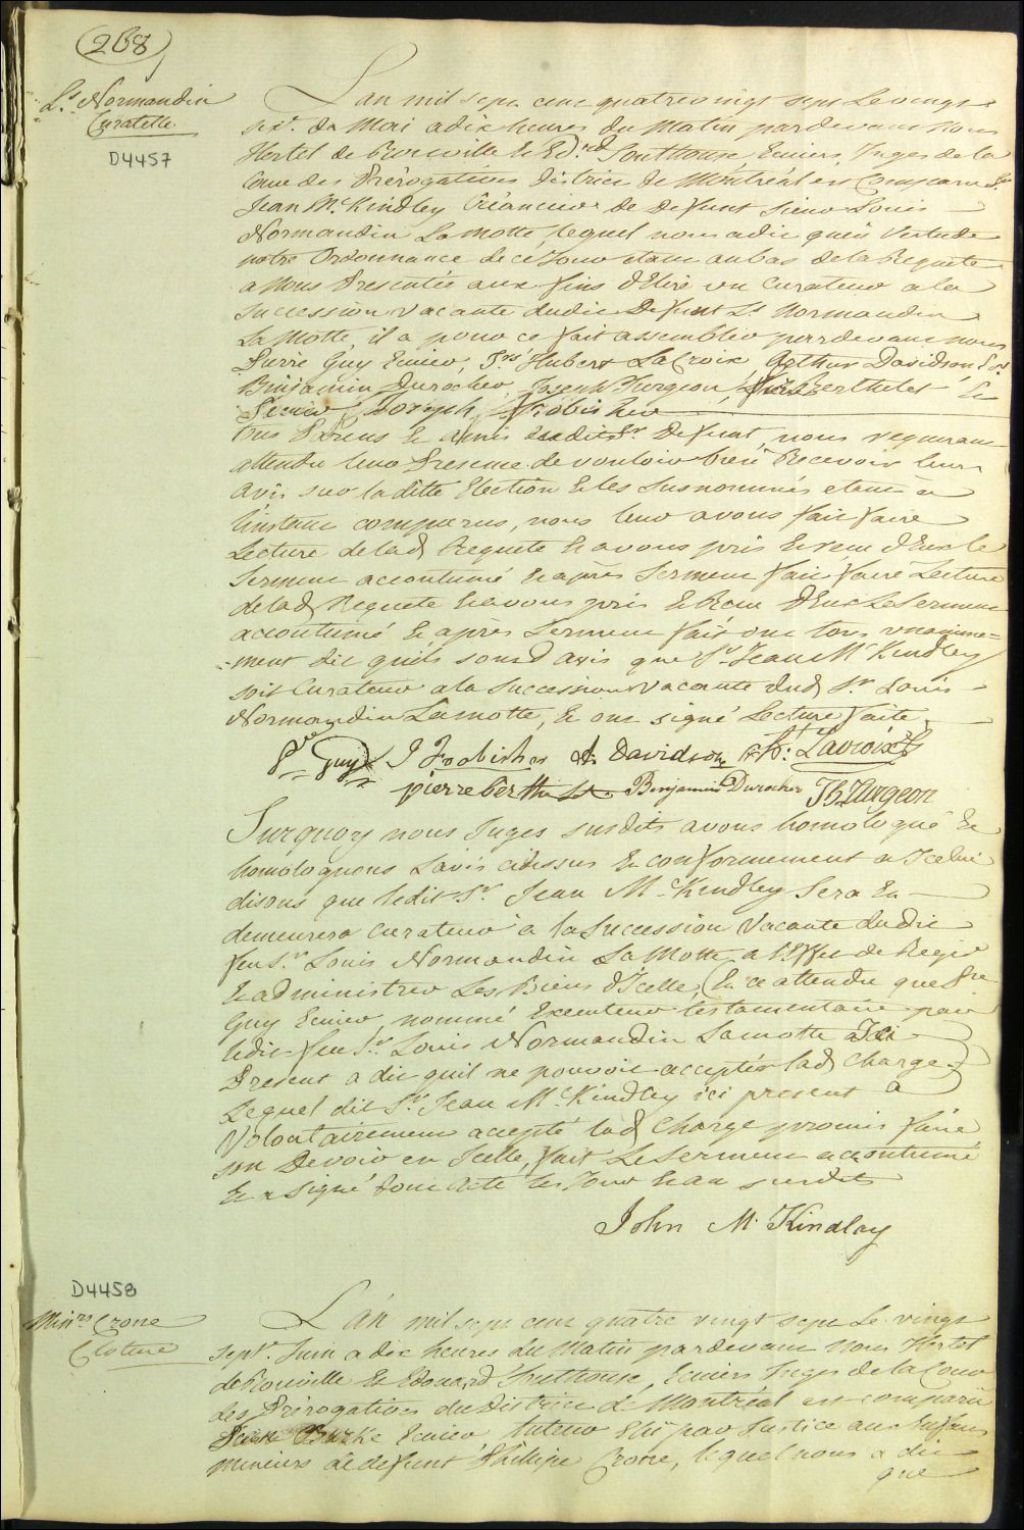 268
Ls. Normandin
Curatelle
D4457
L'an mil sept cent quatrevingt sept Le vingt
sept. de Mai a dix heures du Matin pardevant Nous
Hertel de Rouville & Ed.rd Southouse, Ecuiers, Juges de la
Cour des Prérogatives District de Montréal est Comparu Sr.
Jean Mc. Kindley Créancier de Defunt Sieur Louis
Normandin Lamotte, lequel nous a dit qu'en Vertu de
notre Ordonnance de ce Jour etant au bas de la Requete
a Nous Presentée aux fins d'Elire un Curateur a la
Succession Vacante dudit Defunt Ls. Normandin
La Motte, il a pour ce fait assembler pardevant nous
Pierre Guy Ecuier, Hubert La Croix Arthur Davidson
Benjamin Durocher, Joseph Turgeon, Berthelet
Joseph Frobisher
Tous Parens & Amis dudit Sr. Defunt, nous requerant
attendu leur Presence de vouloir bien Recevoir leur
Avis sur la ditte Election & les Susnommés etant a
l'instant comparus, nous leur avons fait faire
Lecture de lad. Requete & avons pris & reçu d'Eux le
Serment accoutumé & après Serment fait faire Lecture
de lad. Requete & avons pris & Recu d'Eux Le Serment
accoutumé & après Serment fait ont tous unanime=
=ment dit quils sont d'avis que Sr. Jean Mc Kindley
soit Curateur a la Succession Vacante dud. Sr. Louis
Normandin Lamotte, & ont signé Lecture faite.
Pre Guy J Frobisher A. Davidson Ht. Lacroix
pierre berthelet Benjamin Durocher Jh. Turgeon
Surquoy nous Juges susdits avons homologué &
homologuons L'avis cidessus & conformement a Icelui
disons que ledit Sr. Jean Mc. Kindley Sera &
demeurera Curateur à la Succession Vacante dudit
feu Sr. Louis Normandin La Motte a l'Effet de Regir
& administrer Les Biens d'Icelle, (& ce attendu que Pre
Guy Ecuier, nommé Executeur testamentaire par
ledit feu Sr. Louis Normandin Lamotte Ici
Present a dit quil ne pouvoit accepter lad. Charge)
Lequel dit Sr. Jean Mc. Kindley ici present a
Volontairement accepté lad. Charge promis faire
son Devoir en Icelle, fait Le Serment accoutumé
& a Signé dont Acte les Jour & an susdits
John Mc. Kindlay
D4458
Minrs. Crone
Cloture
L'an mil sept cent quatre vingt sept Le vingt
sept. Juin a dix heures du Matin pardevant Nous Hertel
de Rouville & Edouard Southouse, Ecuiers Juges de la Cour
des Prérogatives du District de Montréal est comparu
Burke Ecuier Tuteur Elu par Justice aux Enfans
mineurs de defunt Phillipe Crone, lequel nous a dit
que